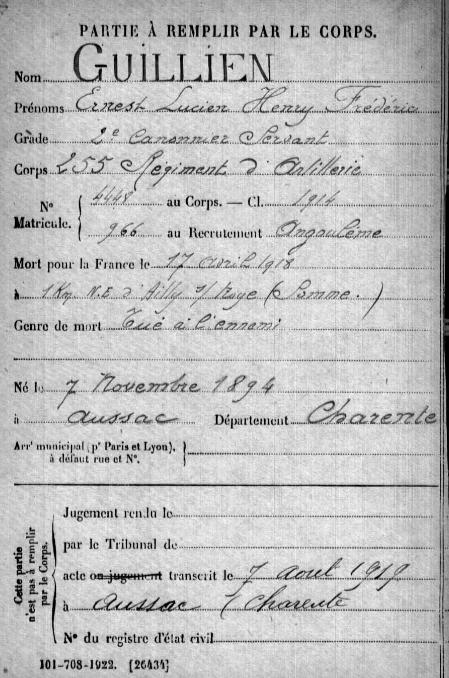 PARTIE À REMPLIR PAR LE CORPS.
Nom GUILLIEN
Prénoms Ernest Lucien Henry Frédéric
Grade 2e canonnier Servant
Corps 255 Régiment d'Artillerie
N° Matricule. { 4448 au Corps. — Cl. 1914
966 au Recrutement Angoulême
Mort pour la France le 17 avril 1918
à 1 Km N.E d'Ailly s/ Noye (Somme.)
Genre de mort Tué à l'ennemi
Né le 7 Novembre 1894
à Aussac Département Charente
Arrt municipal (pr Paris et Lyon), à défaut rue et N°. }
Cette partie n'est pas à remplir par le Corps.
Jugement rendu le
par le Tribunal de
acte ou jugement transcrit le 7 août 1919
à Aussac (Charente
N° du registre d'état civil
101-708-1922. [26434]